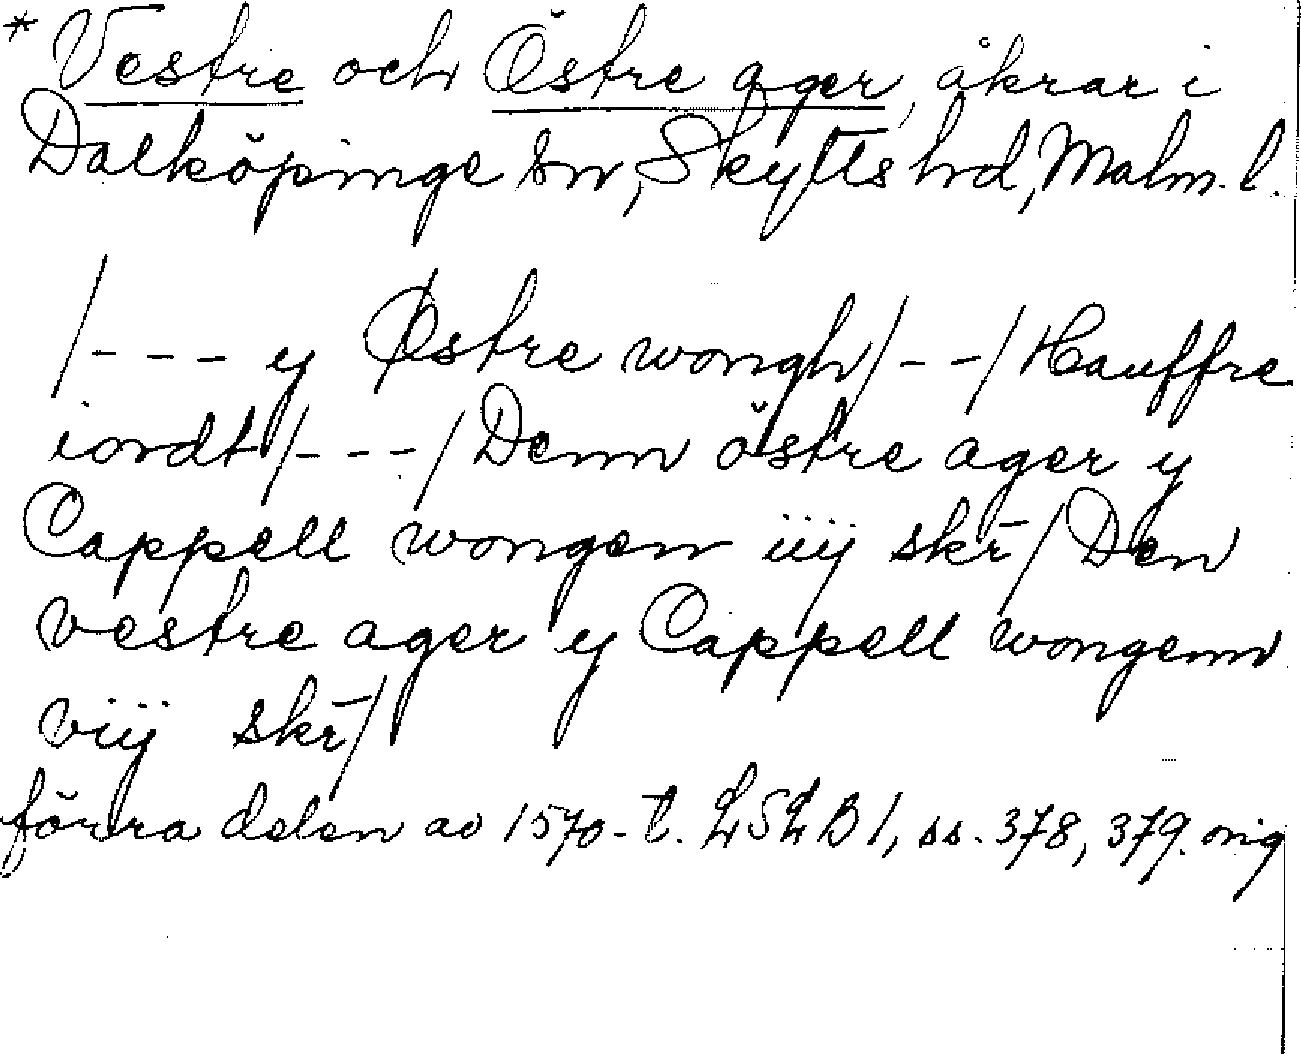 * Vestre och Östre ager, åkrar i
Dalköpinge sn, Skytts hd, Malm. l.
/- - - y Østre wongh/- -/Hauffre
iordt/- - -/Denn östre ager y
Cappell wongen iiij skr̄/Den
vestre ager y Cappell wongenn
viij skr̄/
förra delen av 1570-t. LSLB 1, ss. 378, 379. orig